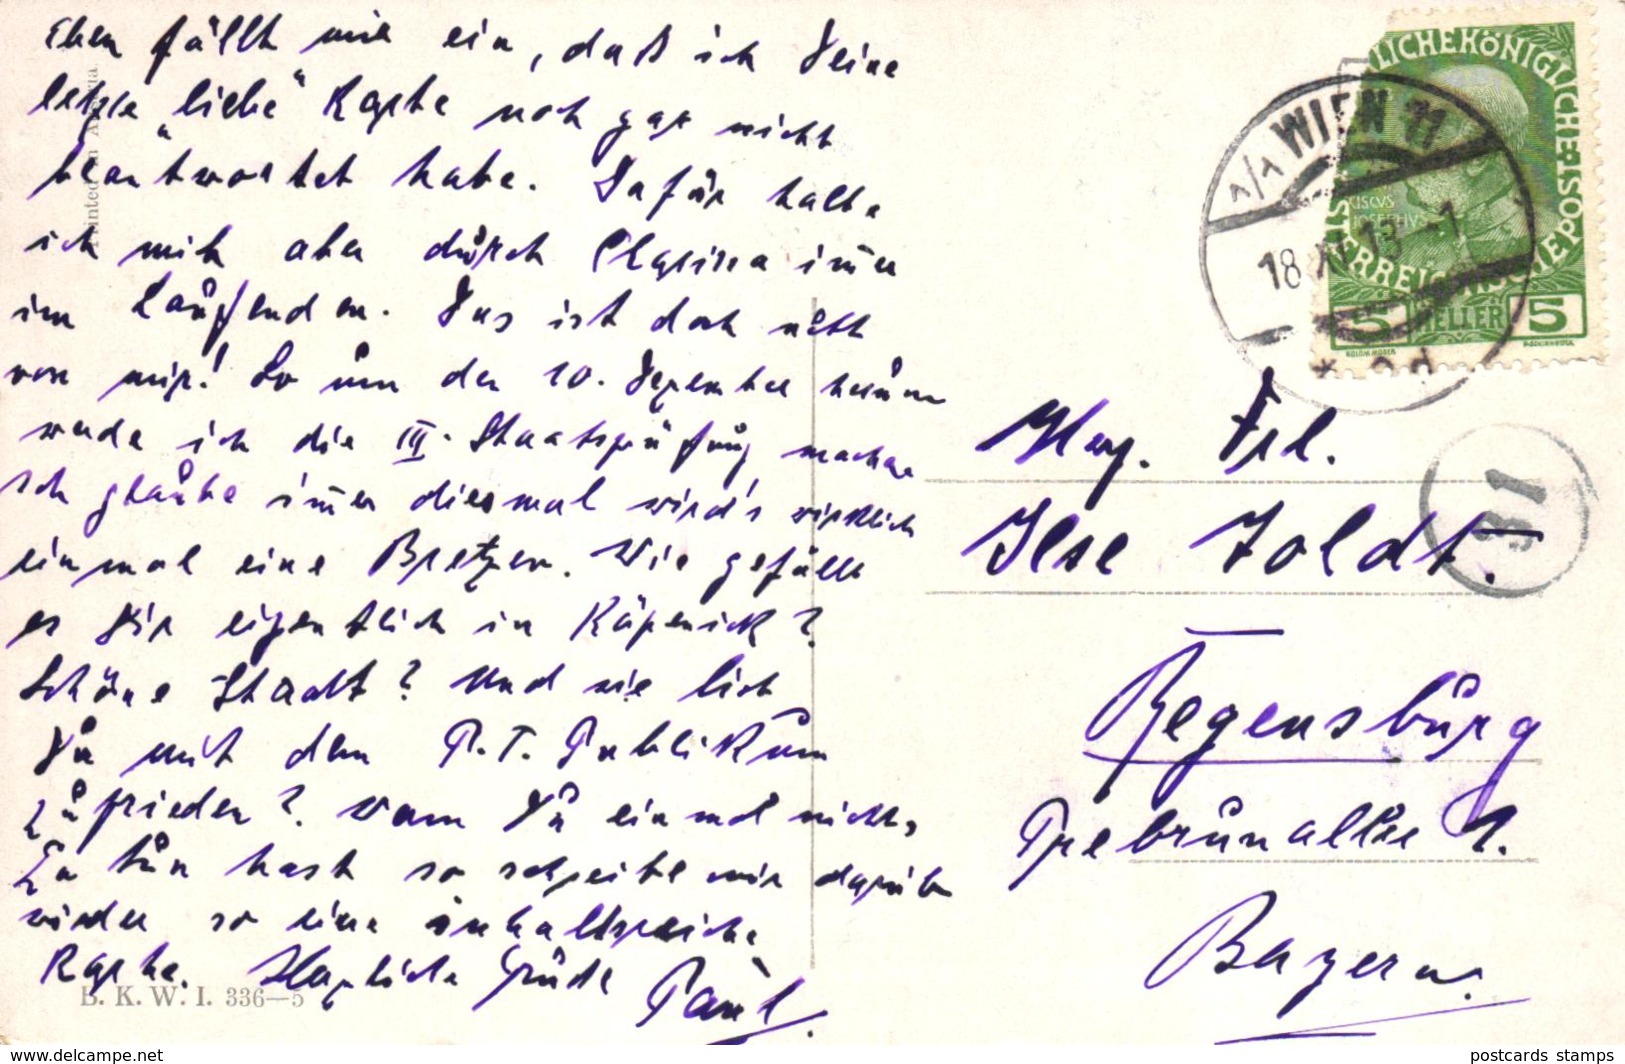 Eben fällt mir ein, daß ich Deine
letzte „liebe" Karte noch gar nicht
beantwortet habe. Dafür halte
ich mich aber durch Clarissa im̄er
im Laufenden. Das ist doch nett
von mir! So um den 10. Dezember herum
werde ich die III. Staatsprüfung machen
Ich glaube im̄er diesmal wird's wirklich
einmal eine Bretzen. Wie gefällt
es Dir eigentlich in Köpenick?
Schöne Stadt? Und wie bist
Du mit dem P.T. Publikum
zufrieden? Wenn Du einmal nichts
zu tun hast so schreibe mir darüber
wieder so eine inhaltsreiche
Karte. Herzliche Grüße Paul.
B. K. W. I. 336-5
Printed in Austria
KAISERLICHEKÖNIGLICHE ÖSTERREICHISCHE POST
FRANCISCVS JOSEPHVS I
5 HELLER 5
KOLOM. MOSER
1/1 WIEN 11
18 XI 13 -1
* 9d
31
Frl.
Ilse Zoldt.
Regensburg
Prebrunallee 1.
Bayern.
www.delcampe.net
postcards stamps